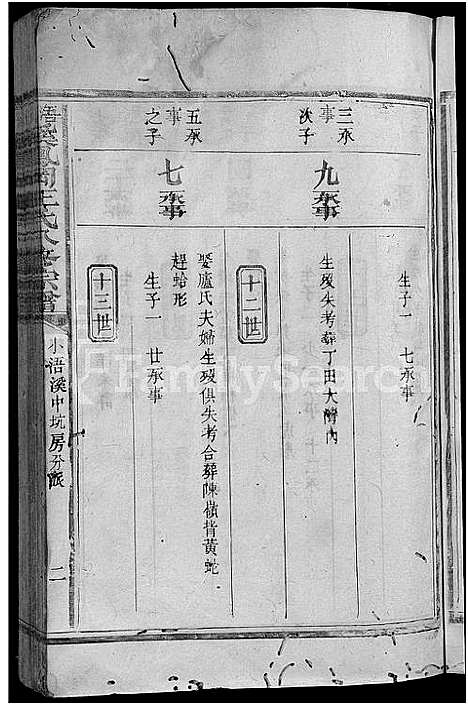 生子一 七承事
三承
事
次子
九承事
生歿失考葬丁田大壠內
十二世
五承
事
之子
七承事
娶廬氏夫婦生歿俱失考合葬陳嶺背黃蛇
趕蛤形
生子一 廿承事
十三世
小浯溪中坑房分派
二
FamilySearch